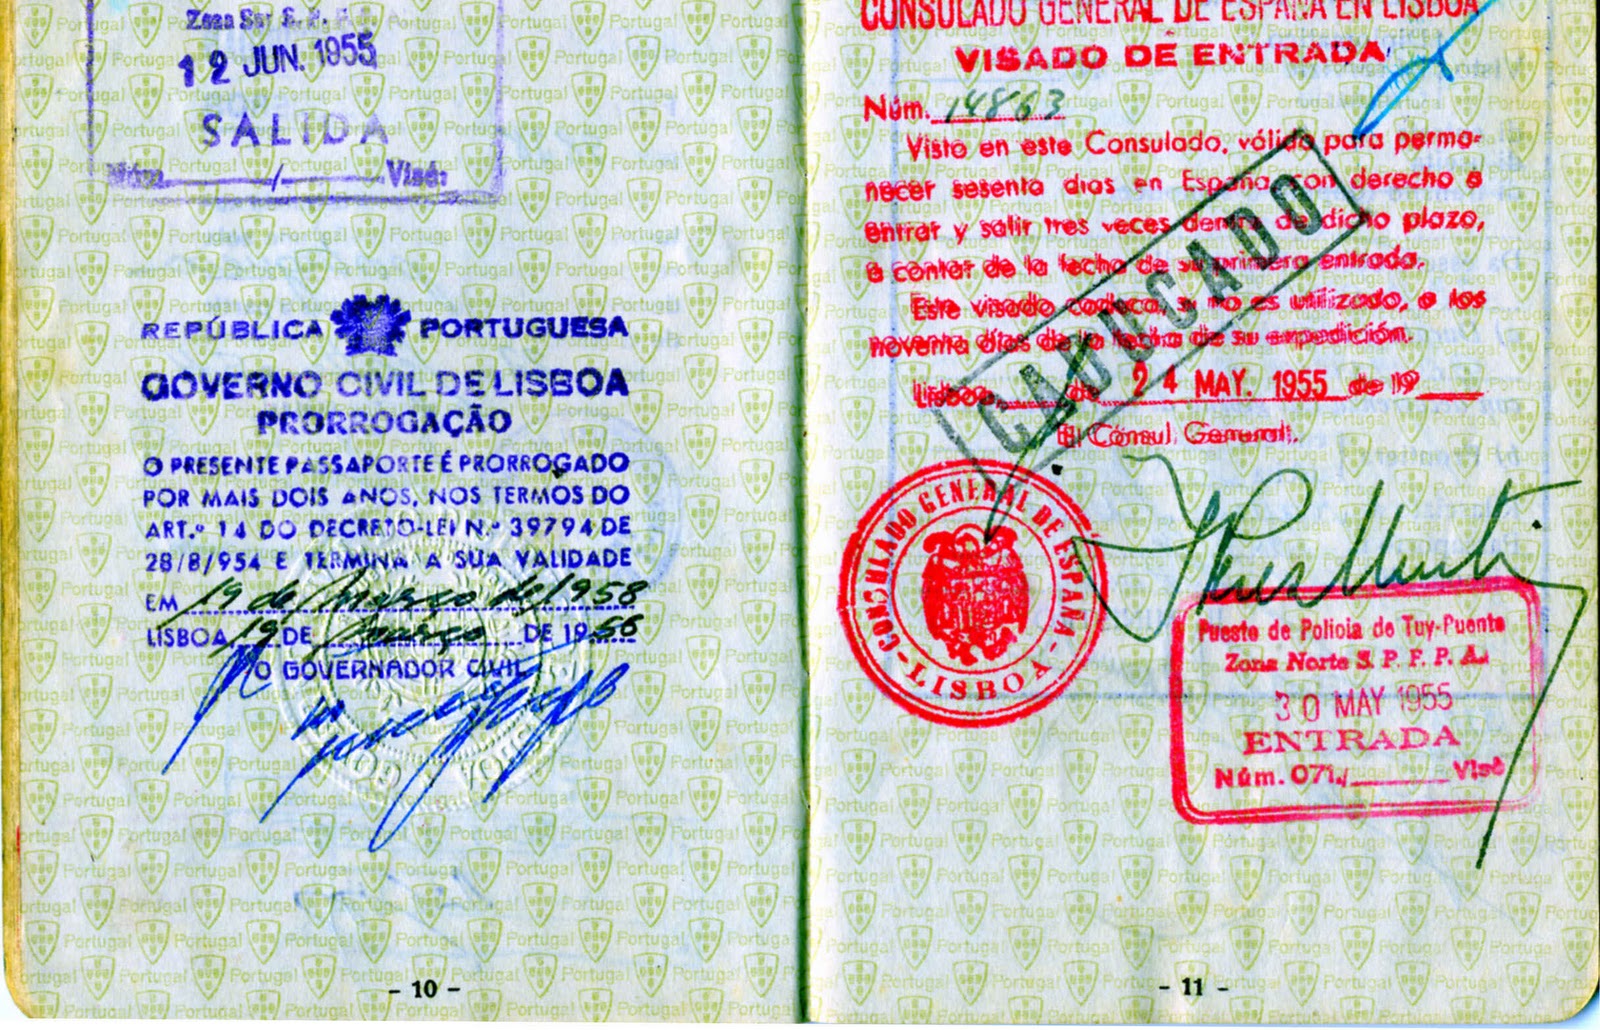 Zona Sur S. P. F. P.
12 JUN. 1955
SALIDA
Núm. / Visé:
REPÚBLICA PORTUGUESA
GOVERNO CIVIL DE LISBOA
PRORROGAÇÃO
O PRESENTE PASSAPORTE É PRORROGADO
POR MAIS DOIS ANOS, NOS TERMOS DO
ART.º 14 DO DECRETO-LEI N.º 39794 DE
28/8/954 E TERMINA A SUA VALIDADE
EM 19 de Março de 1958
LISBOA 19 DE Março DE 1956
O GOVERNADOR CIVIL
- 10 -
CONSULADO GENERAL DE ESPAÑA EN LISBOA
VISADO DE ENTRADA
Núm. 14863
Visto en este Consulado, válido para perma-
necer sesenta días en España, con derecho a
entrar y salir tres veces dentro de dicho plazo,
a contar de la fecha de su primera entrada.
Este visado caduca, si no es utilizado, a los
noventa días de la fecha de su expedición.
Lisboa, de 24 MAY. 1955 de 19
El Cónsul General,
CADUCADO
CONSULADO GENERAL DE ESPAÑA
- LISBOA -
Puesto de Policia de Tuy-Puente
Zona Norte S. P. F. P. A.
30 MAY 1955
ENTRADA
Núm. 071./ Visé
- 11 -